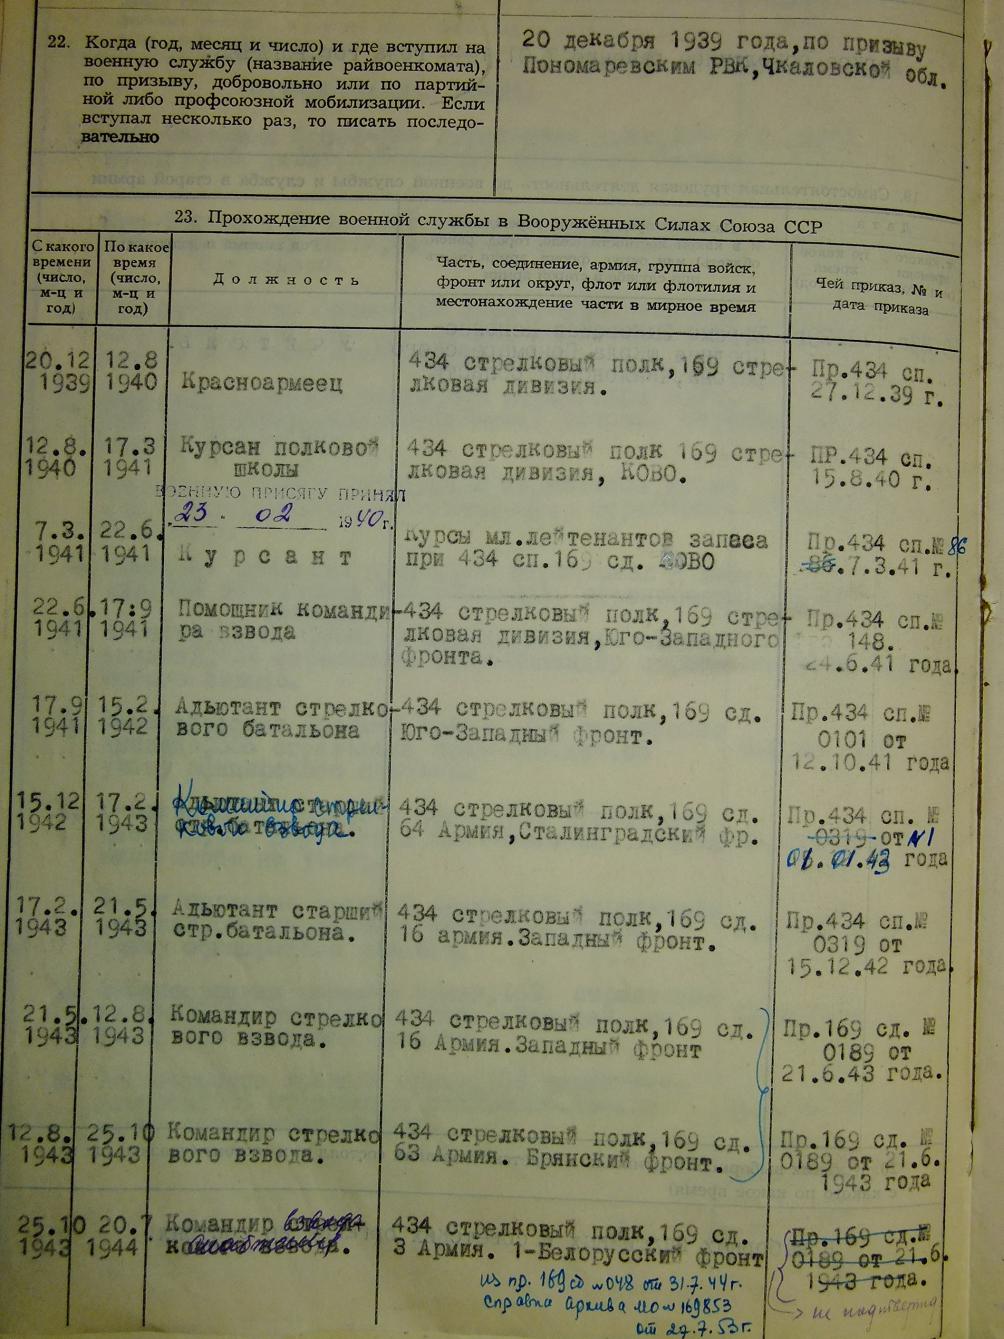 22. Когда (год, месяц и число) и где вступил на
военную службу (название райвоенкомата),
по призыву, добровольно или по партий-
ной либо профсоюзной мобилизации. Если
вступал несколько раз, то писать последо-
вательно
20 декабря 1939 года,по призыву
Пономаревским РВК,Чкаловской обл.
23. Прохождение военной службы в Вооружённых Силах Союза ССР
С какого времени (число, м-ц и год)
По какое время (число, м-ц и год)
Должность
Часть, соединение, армия, группа войск,
фронт или округ, флот или флотилия и
местонахождение части в мирное время
Чей приказ, № и
дата приказа
20.12 12.8 434 стрелковый полк,169 стре- Пр.434 сп.
1939 1940 Красноармеец лковая дивизия. 27.12.39 г.
12.8. 17.3 Курсан полковой 434 стрелковый полк 169 стре- ПР.434 сп.
1940 1941 школы лковая дивизия, КОВО. 15.8.40 г.
ВОЕННУЮ ПРИСЯГУ ПРИНЯЛ
23 02 1940 г.
7.3. 22.6. Курсы мл.лейтенантов запаса Пр.434 сп.№ 86
1941 1941 Курсант при 434 сп.169 сд. КОВО 86.7.3.41 г.
22.6. 17:9 Помощник команди- 434 стрелковый полк,169 стре- Пр.434 сп.№
1941 1941 ра взвода лковая дивизия,Юго-Западного 148.
фронта. 24.6.41 года
17.9 15.2. Адьютант стрелко- 434 стрелковый полк,169 сд. Пр.434 сп.№
1941 1942 вого батальона Юго-Западный фронт. 0101 от
12.10.41 года
15.12 17.2. Командир стрел- 434 стрелковый полк,169 сд. Пр.434 сп. №
1942 1943 кового взвода. 64 Армия,Сталинградский фр. 0319 от №1
01.01.43 года
17.2. 21.5. Адьютант старший 434 стрелковый полк,169 сд. Пр.434 сп.№
1943 1943 стр.батальона. 16 армия.Западный фронт. 0319 от
15.12.42 года.
21.5. 12.8. Командир стрелко 434 стрелковый полк,169 сд. Пр.169 сд. №
1943 1943 вого взвода. 16 Армия.Западный фронт 0189 от
21.6.43 года.
12.8. 25.10 Командир стрелко 434 стрелковый полк,169 сд. Пр.169 сд. №
1943 1943 вого взвода. 63 Армия. Брянский фронт. 0189 от 21.6.
1943 года
25.10 20.7 Командир взвода 434 стрелковый полк,169 сд. Пр.169 сд.№
1943 1944 3 Армия. 1-Белорусский фронт 0189 от 21.6.
1943 года.
из пр. 169 сд №048 от 31.7.44г.
Справка архива МО № 169853
от 27.7.53г.
не подтвержд